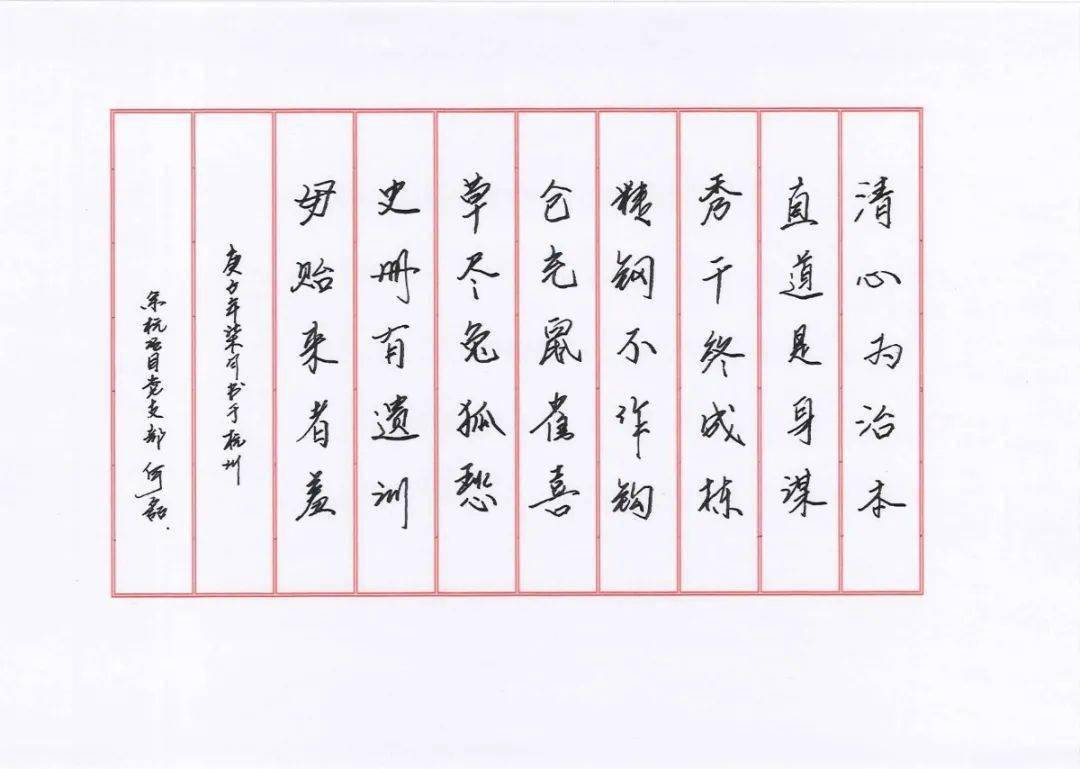 清心为治本
直道是身谋
秀干终成栋
精钢不作钩
仓充鼠雀喜
草尽兔狐愁
史册有遗训
毋贻来者羞
庚子年柒月书于杭州
余杭项目党支部 何磊